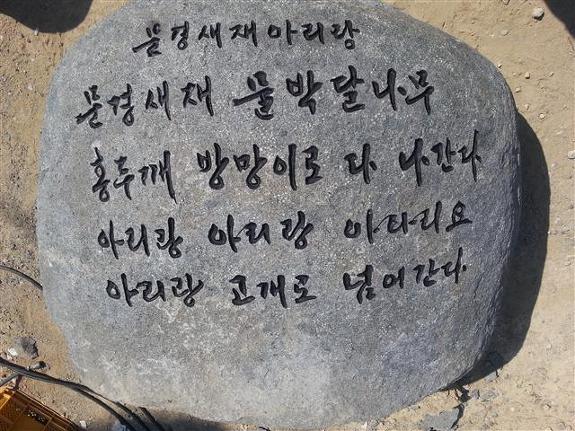 문경새재아리랑
문경새재 물박달나무
홍두깨 방망이로 다 나간다
아리랑 아리랑 아라리요
아리랑 고개로 넘어간다